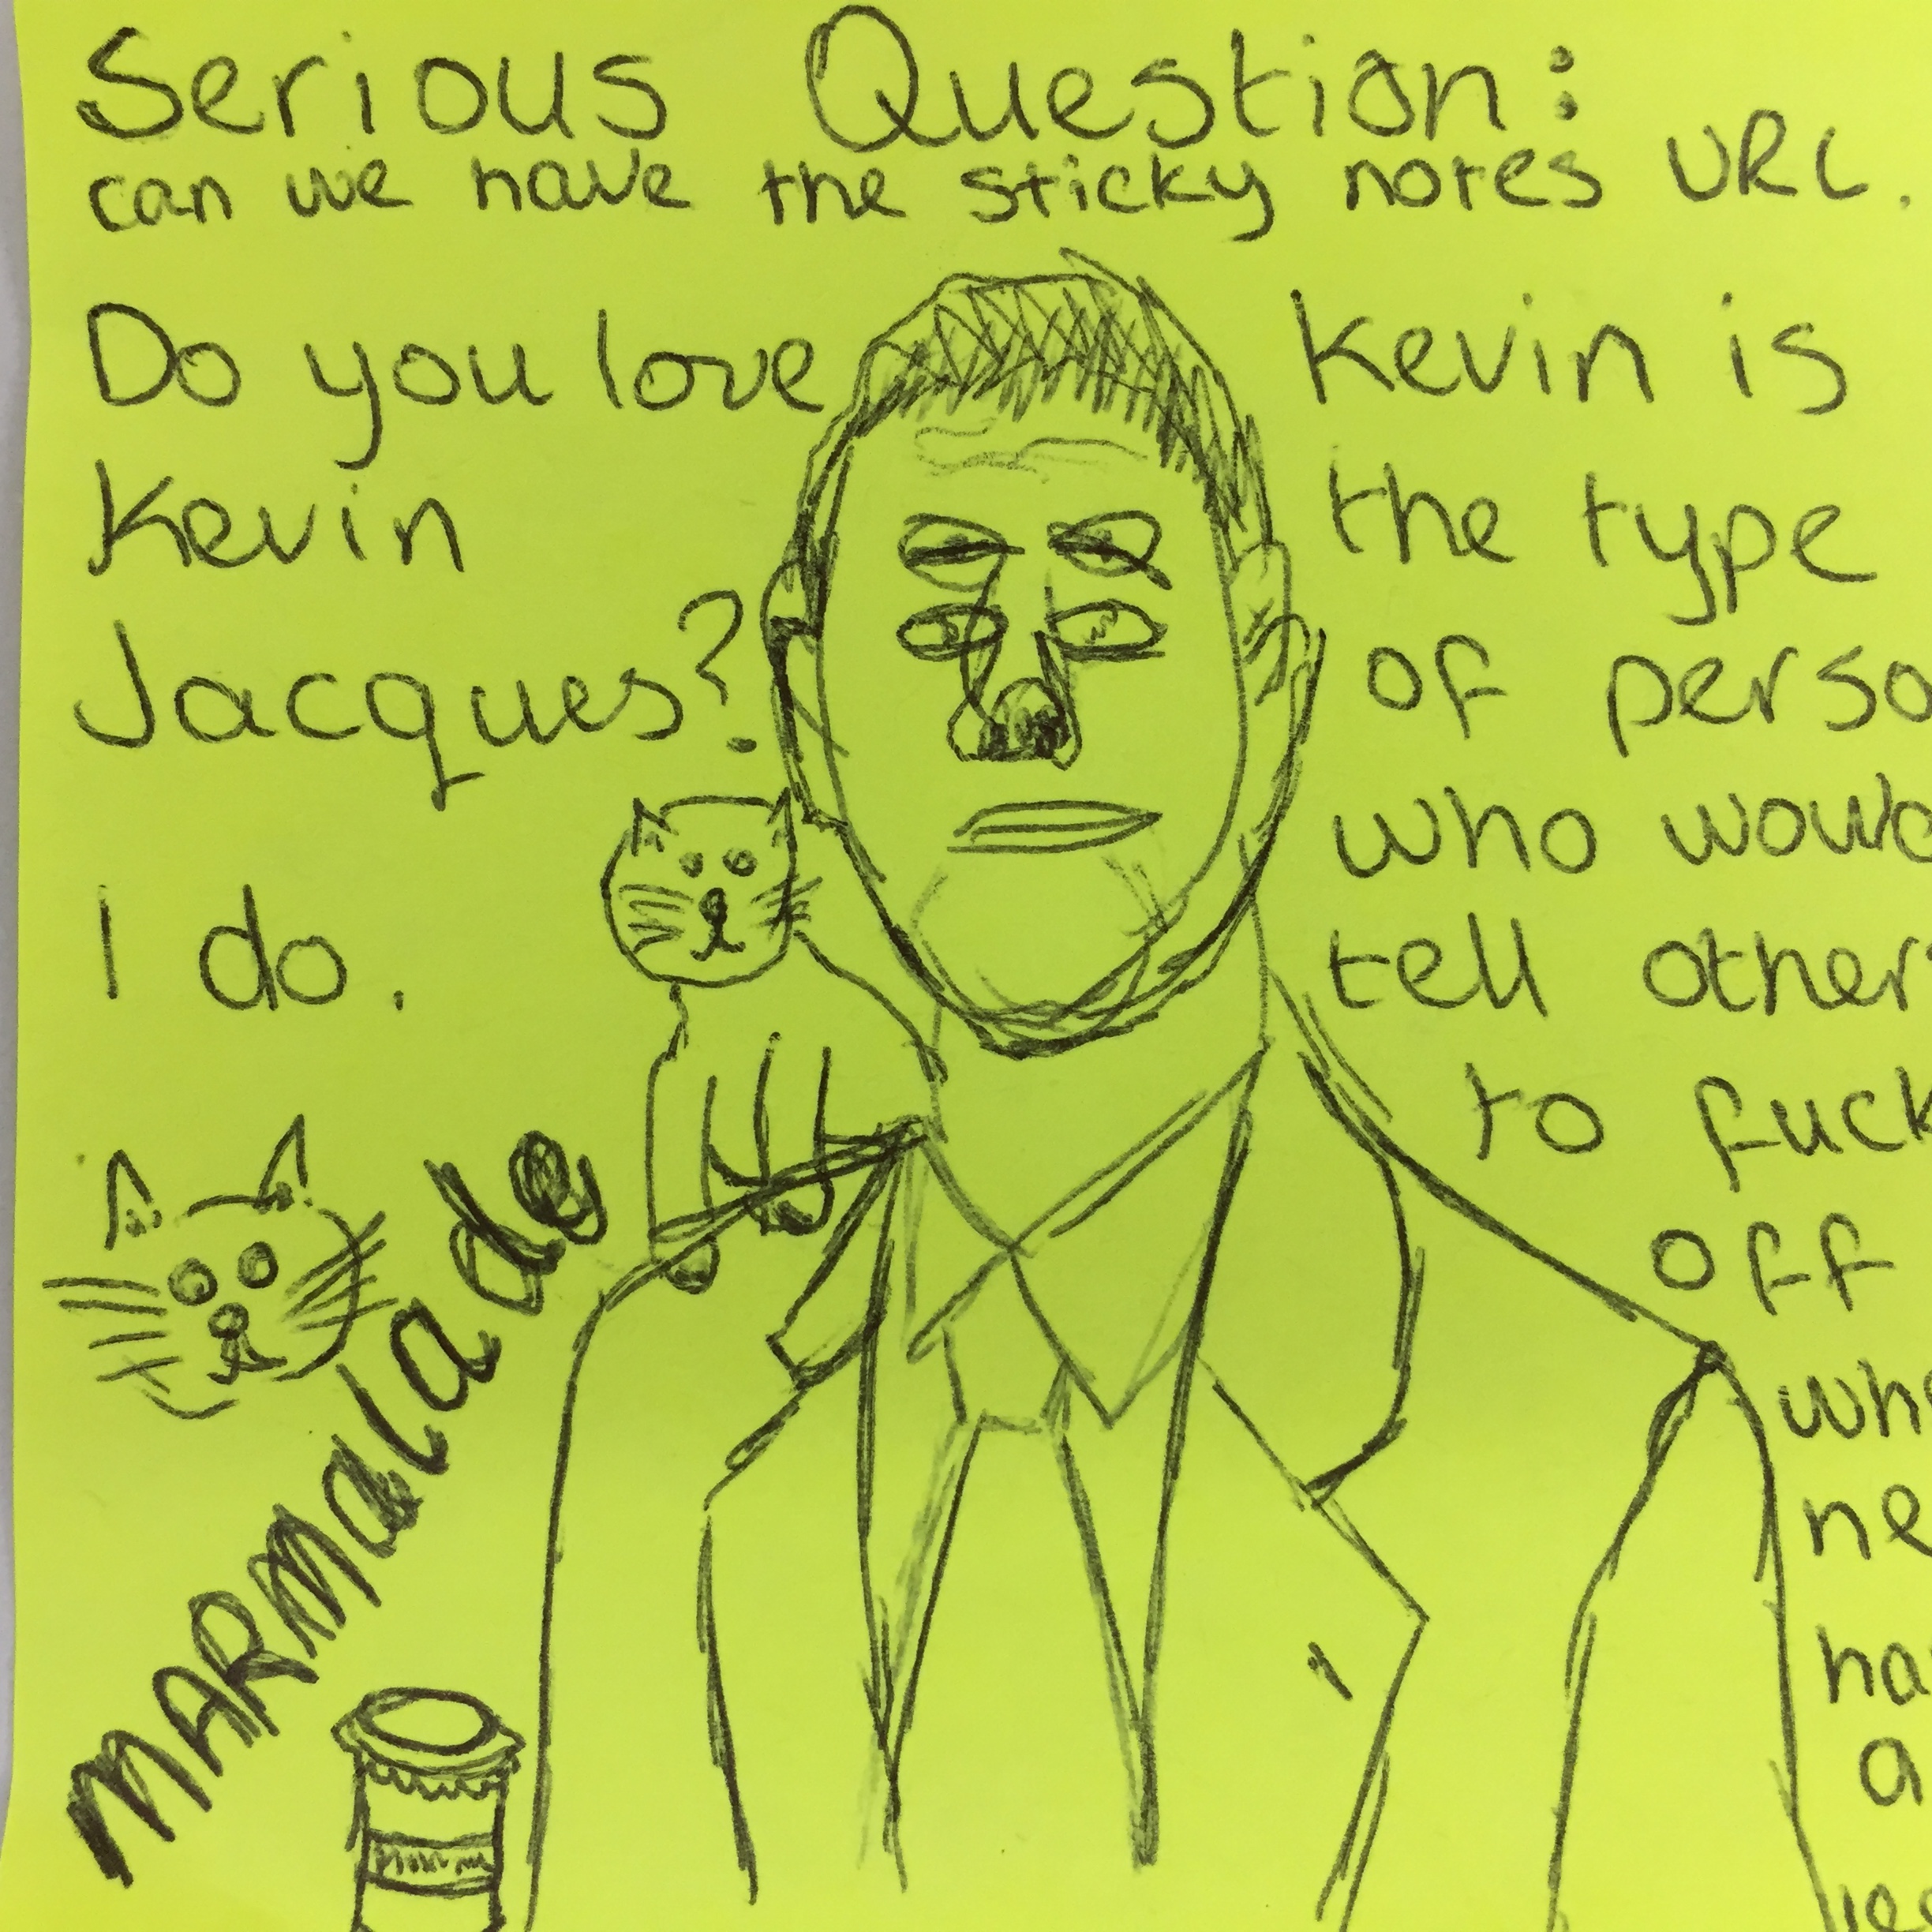 Serious Question:
can we have the sticky notes URL.
Do you love
Kevin
Jacques?
I do.
MARMalade
Kevin is
the type
of perso
who would
tell other
to fuck
off
whe
ne
ha
a